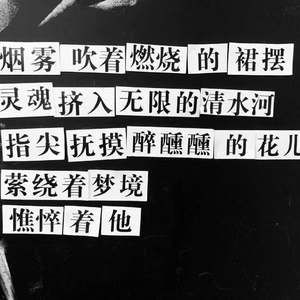 烟雾吹着燃烧的裙摆
灵魂挤入无限的清水河
指尖抚摸醉醺醺的花儿
萦绕着梦境
憔悴着他